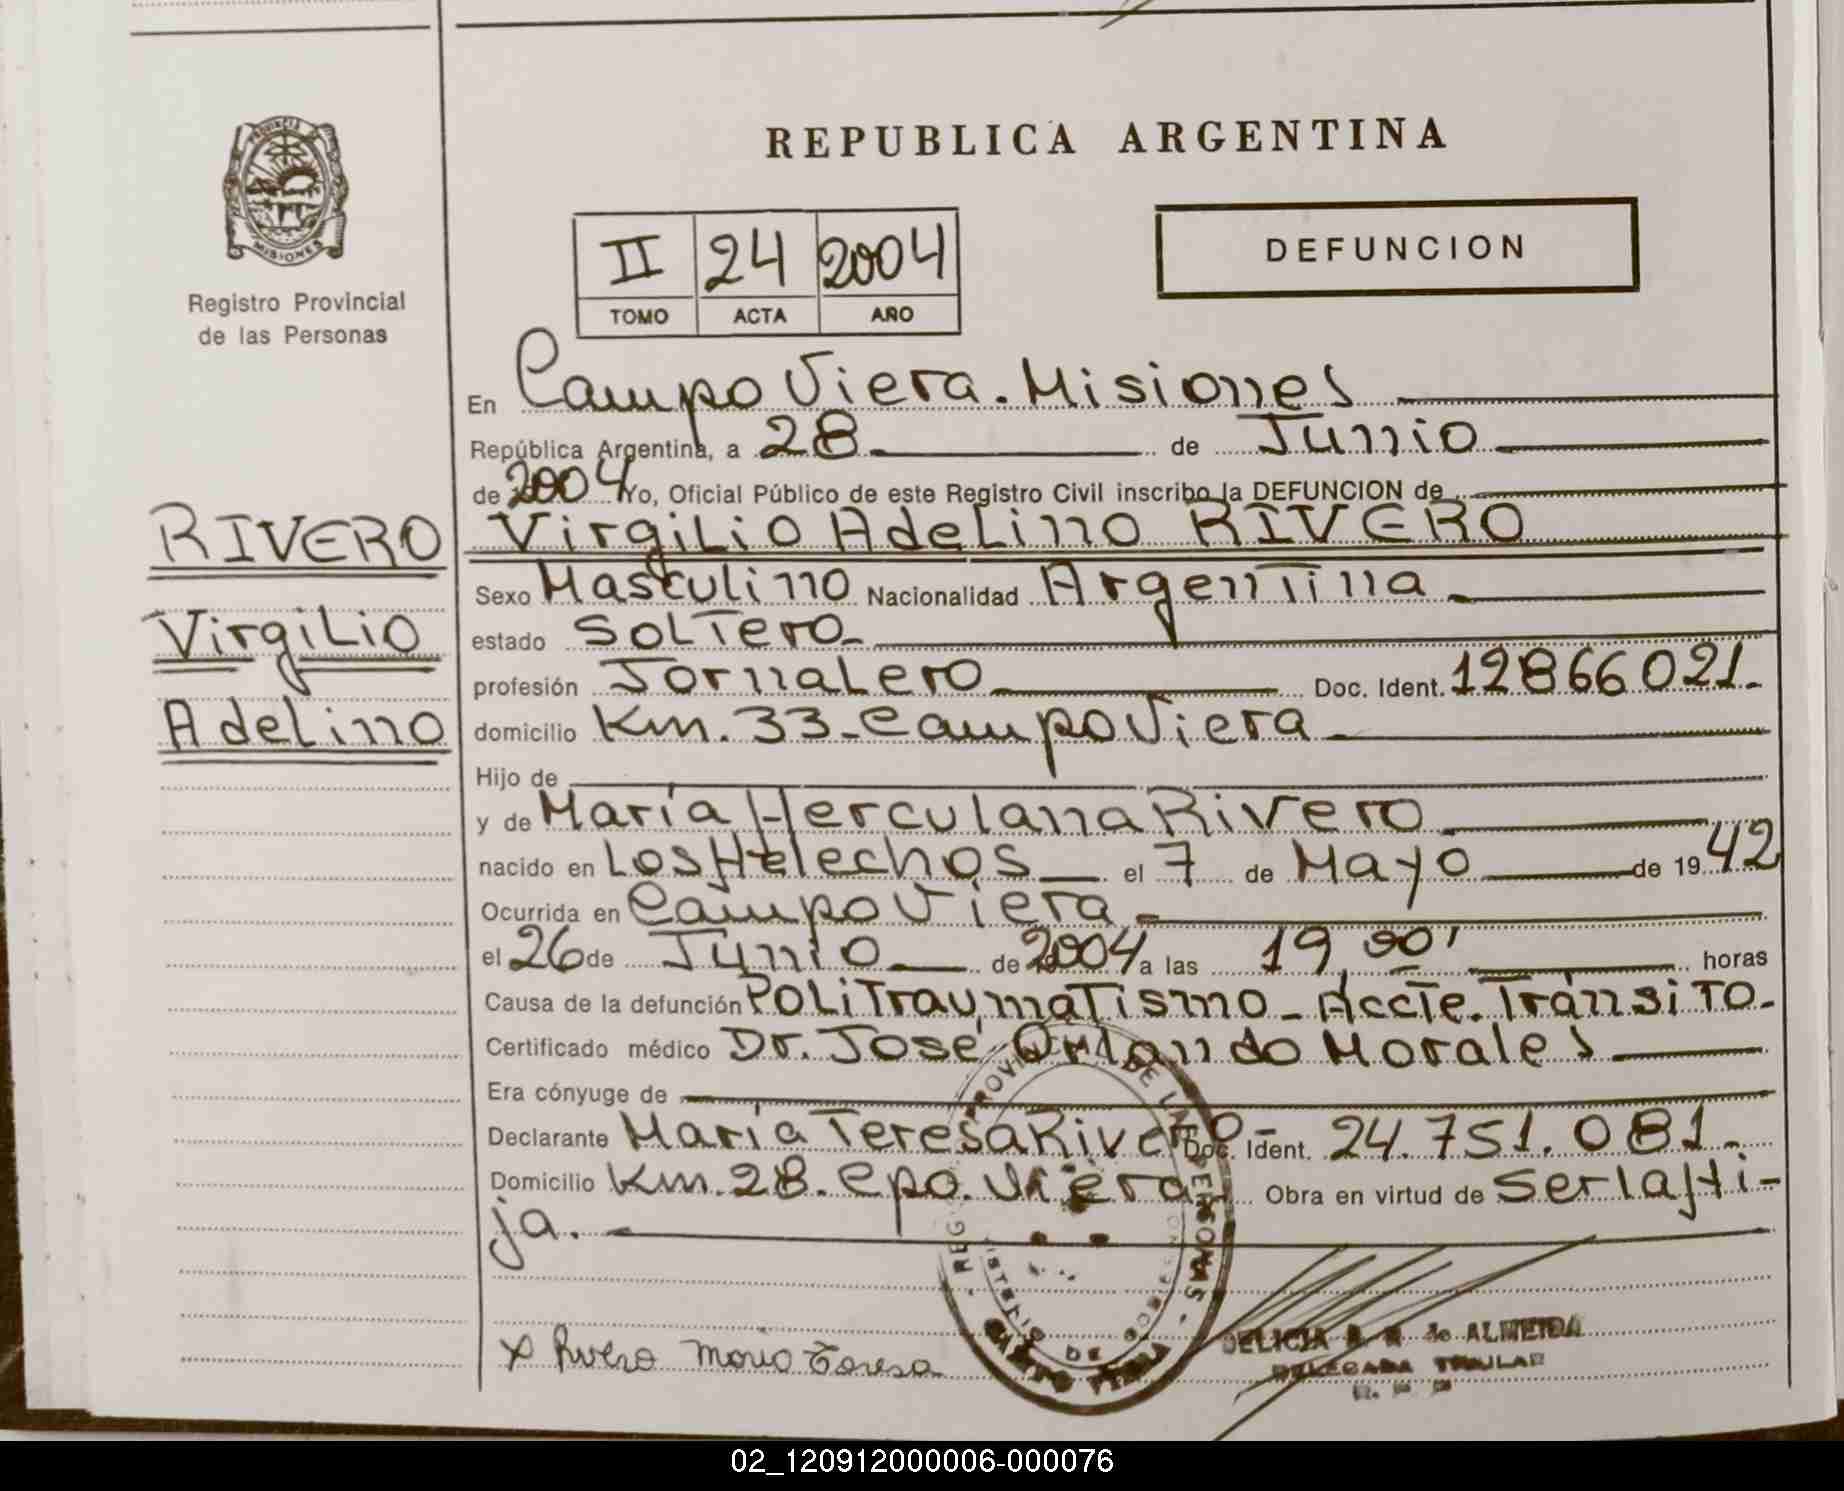 PROVINCIA DE
MISIONES
Registro Provincial
de las Personas
RIVERO
Virgilio
Adelino
REPUBLICA ARGENTINA
II 24 2004
TOMO ACTA AÑO
DEFUNCION
En Campo Viera. Misiones
República Argentina, a 28 de Junio
de 2004 Yo, Oficial Público de este Registro Civil inscribo la DEFUNCION de
Virgilio Adelino RIVERO
Sexo Masculino Nacionalidad Argentina
estado Soltero
profesión Jornalero Doc. Ident. 12866021.
domicilio Km. 33 - Campo Viera
Hijo de
y de María Herculana Rivero
nacido en Los Helechos el 7 de Mayo de 1942
Ocurrida en Campo Viera
el 26 de Junio de 2004 a las 19,00' horas
Causa de la defunción Politraumatismo - Accte. Tránsito.
Certificado médico Dr. José Orlando Morales
Era cónyuge de
Declarante María Teresa Rivero Doc. Ident. 24.751.081.
Domicilio Km. 28. Cpo. Viera Obra en virtud de ser la hi-
ja.
x Rivero Maria Teresa
DELICIA R. de ALMEIDA
DELEGADA TITULAR
02_120912000006-000076